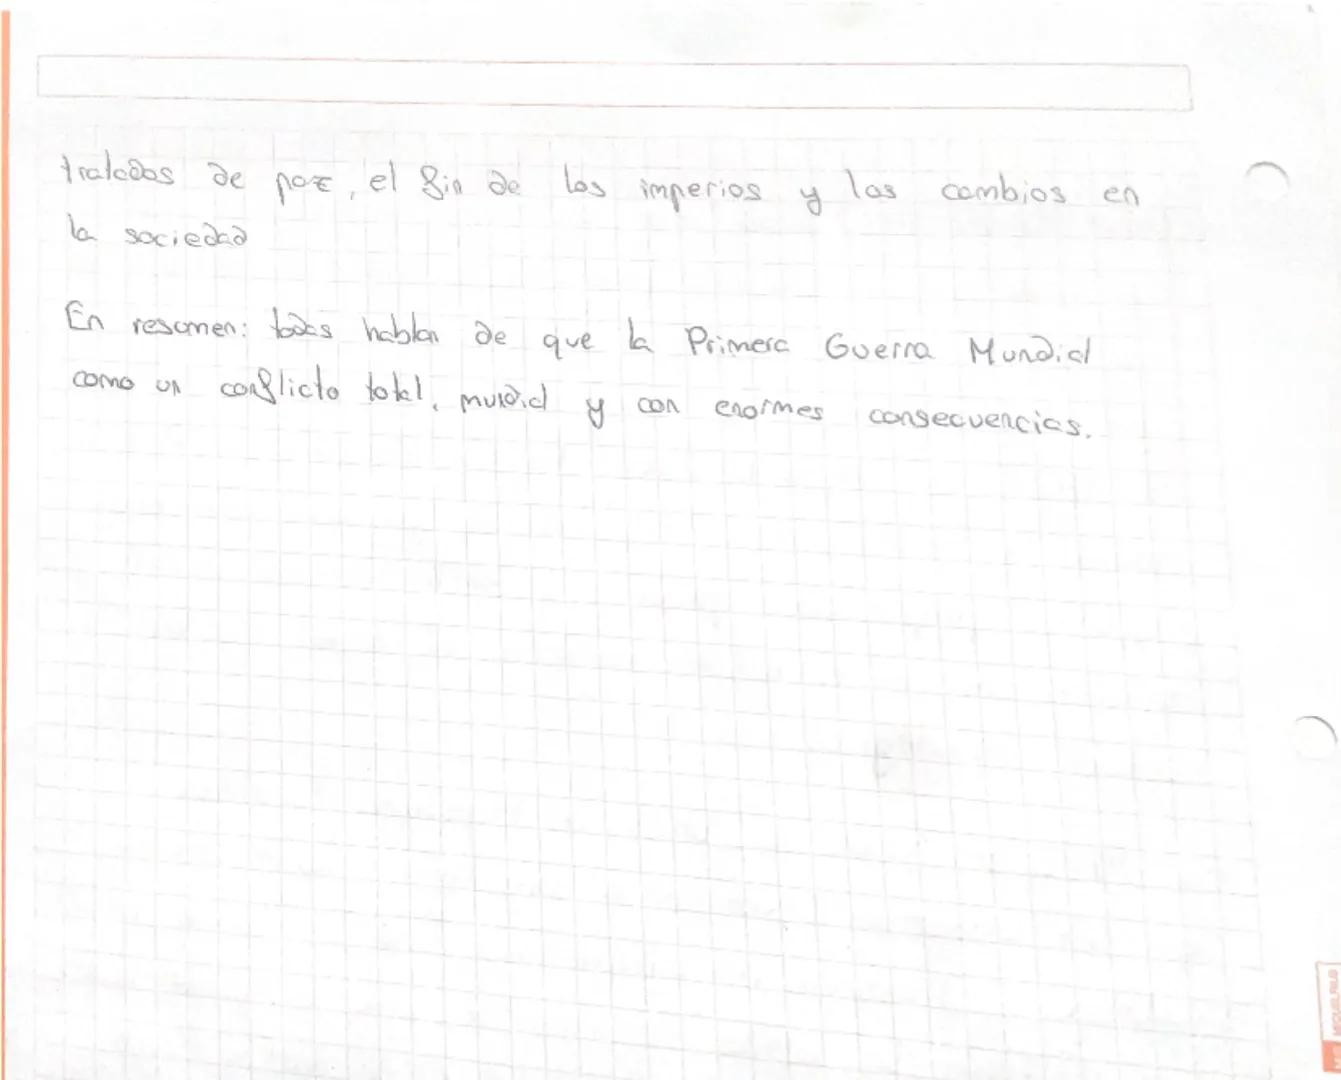 tratados de paz, el fin de los imperios y los cambios en
la sociedad
En resumen: todas hablan de que la Primera Guerra Mundial
como un conflicto total, mundial y con enormes consecuencias.
MIQUELRIUS